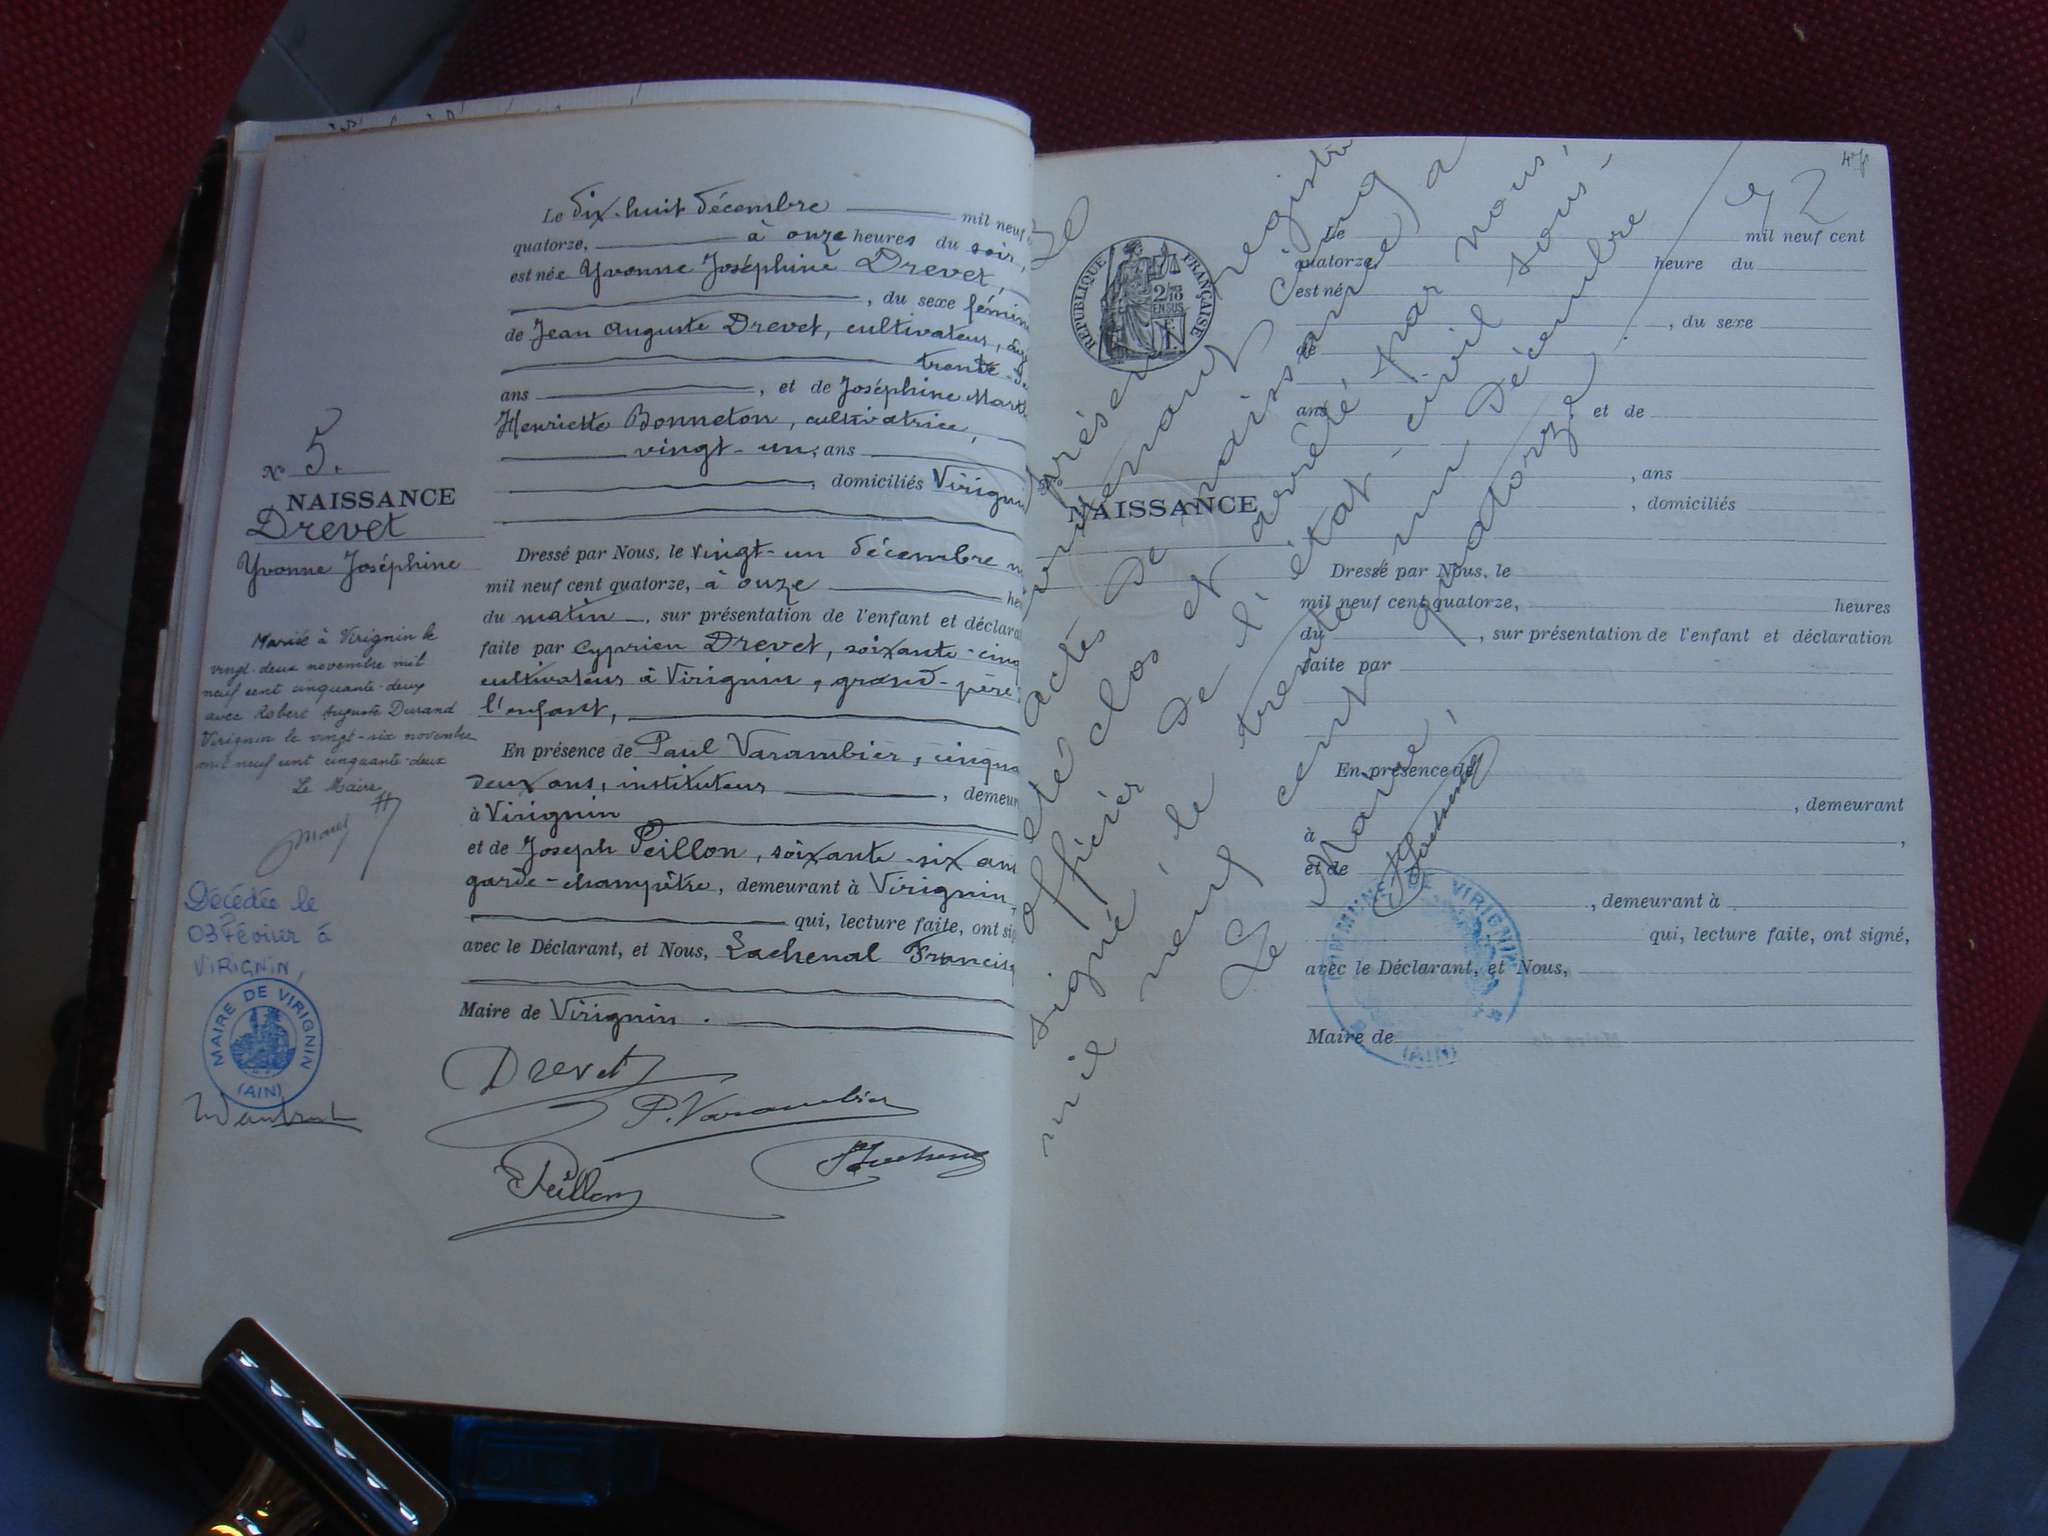 Le dix-huit décembre mil neuf
quatorze, à onze heures du soir,
est née Yvonne Joséphine Drevet,
, du sexe fémin
de Jean Auguste Drevet, cultivateur,
trente
ans , et de Joséphine
Henriette Bonneton, cultivatrice,
vingt-un, ans
, domiciliés Virignin
N° 5.
NAISSANCE
Drevet
Yvonne Joséphine
Dressé par Nous, le vingt-un décembre
mil neuf cent quatorze, à onze
du matin, sur présentation de l'enfant et
faite par Cyprien Drevet, soixante-cinq
cultivateur à Virignin, grand-père
l'enfant,
En présence de Paul Varambier,
deux ans, instituteur ,
à Virignin
et de Joseph Peillon, soixante-six ans
garde-champêtre, demeurant à Virignin,
qui, lecture faite, ont
avec le Déclarant, et Nous, Lachenal
Maire de Virignin.
Drevet
P. Varambier
Peillon
Mariée à Virignin le
vingt-deux novembre mil
neuf cent cinquante-deux
avec Robert Auguste Durand
Virignin le vingt-six novembre
mil neuf cent cinquante-deux
Le Maire
Décédée le
03 Février à
VIRIGNIN,
MAIRE DE VIRIGNIN
(AIN)
Le
présent registre
contenant cinq
actes de naissance, a
été clos et arrêté par nous,
officier de l'état-civil sous-
signé, le trente un décembre
mil neuf cent quatorze
Le Maire,
COMMUNE DE VIRIGNIN
(AIN)
RÉPUBLIQUE FRANÇAISE
Le mil neuf cent
quatorze, heure du
est né
, du sexe
de
ans et de
, ans
NAISSANCE
, domiciliés
Dressé par Nous, le
mil neuf cent quatorze, heures
du , sur présentation de l'enfant et déclaration
faite par
En présence de
, demeurant
à ,
et de
, demeurant à
qui, lecture faite, ont signé,
avec le Déclarant, et Nous,
Maire de